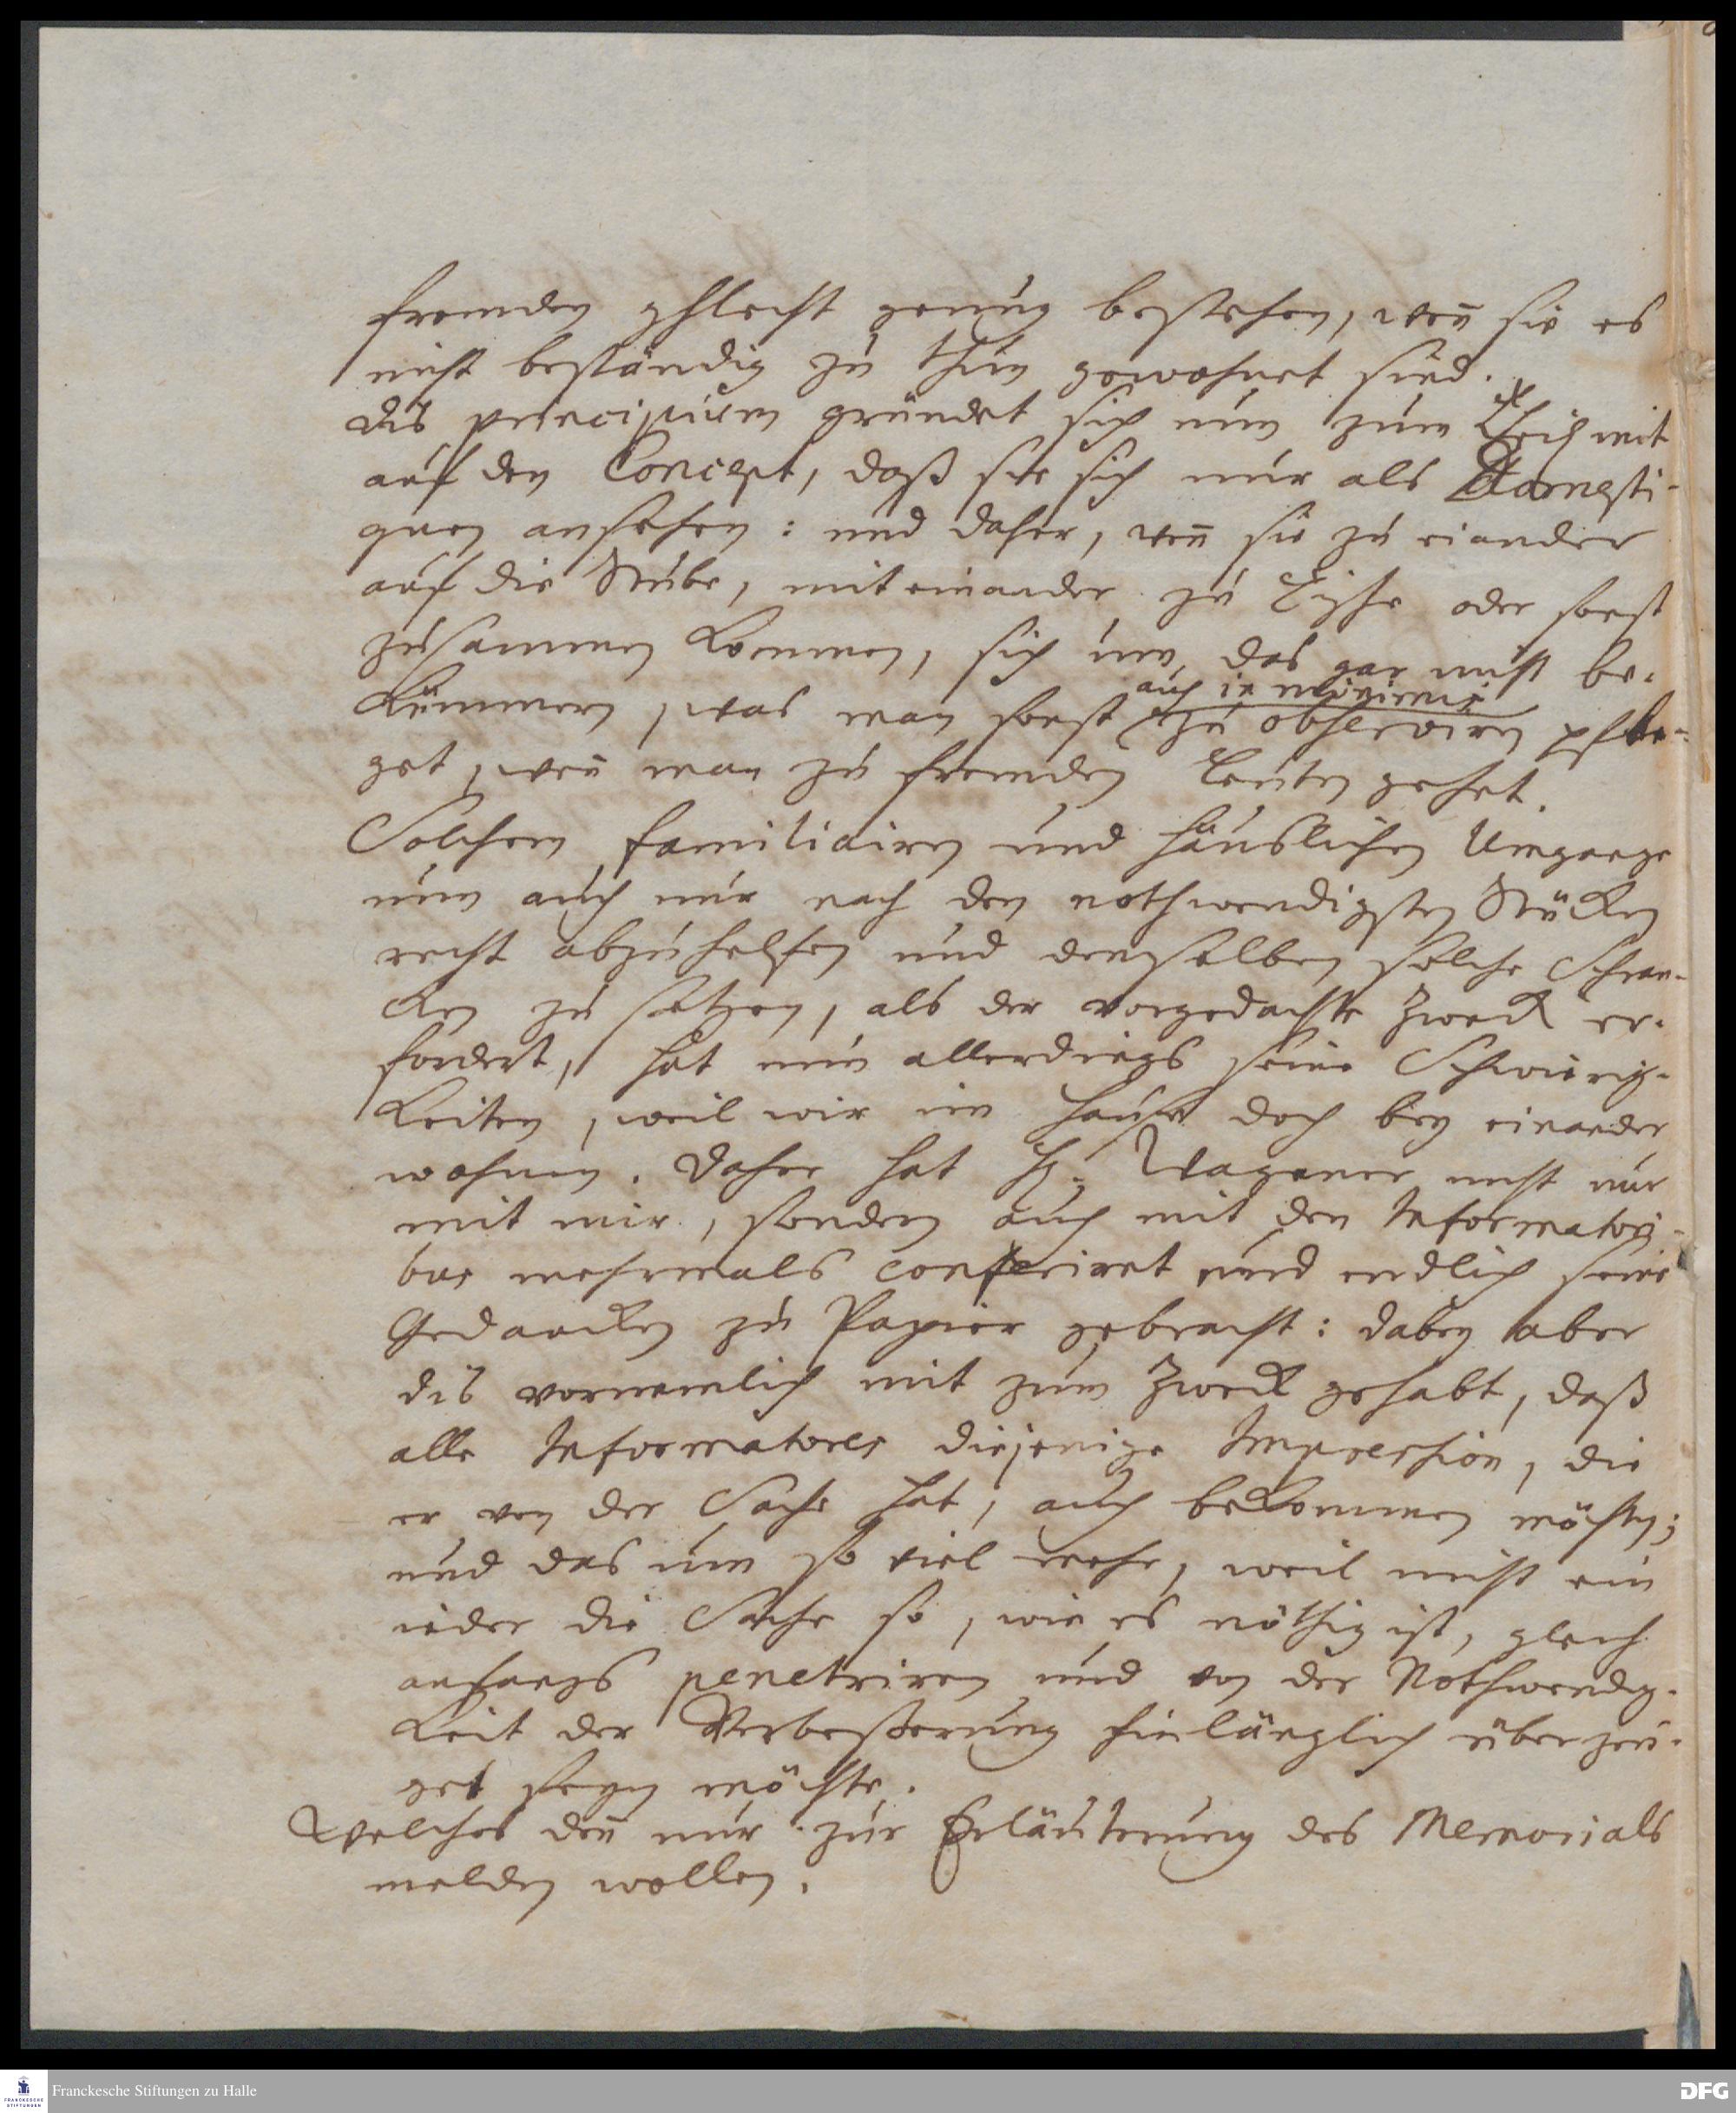 fremden schlecht genug bestehen, weñ sie es
nicht beständig zu thun gewohnet sind.
Dis principium gründet sich nun zum Theil mit
auf den Concept, daß sie sich nur als Domesti-
quen ansehen: und daher, weñ sie zu einander
auf die Stube, mit einander zu Tische oder sonst
zusammen kommen, sich um das gar nicht be-
kümmern, was man sonst auch in minimis
zu observiren pfle-
get, weñ man zu fremden Leuten gehet.
Solchem familiairen und häuslichen Umgange
nun auch nur nach den nothwendigsten Stücken
recht abzuhelfen und demselben solche Schran-
cken zu setzen, als der vorgedachte Zweck er-
fordert, hat nun allerdings seine Schwierig-
keiten, weil wir im Hause doch bey einander
wohnen. Daher hat H. Wagener nicht nur
mit mir, sondern auch mit den Informatori-
bus mehrmals conferiret und endlich seine
Gedancken zu Papier gebracht: dabey aber
dis vornemlich mit zum Zweck gehabt, daß
alle Informatores diejenige Impression, die
er von der Sache hat, auch bekommen möchten;
und das um so viel mehr, weil nicht ein
ieder die Sache so, wie es nöthig ist, gleich
anfangs penetriren und von der Nothwendig-
keit der Verbeßerung hinlänglich überzeu-
get seyn möchte.
Welches deñ nur zur Erläuterung des Memorials
melden wollen.
Franckesche Stiftungen zu Halle
FRANCKESCHE
STIFTUNGEN
DFG